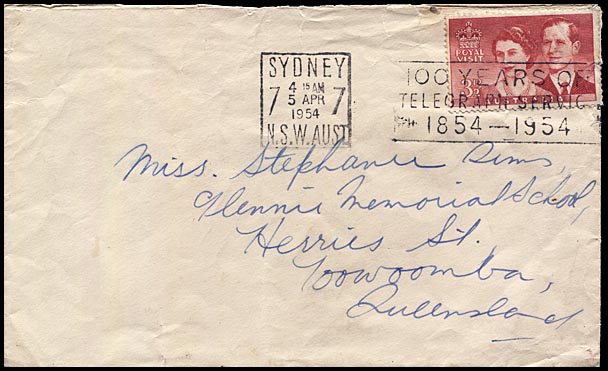 ROYAL
VISIT
SYDNEY
4 15 AM
7 5 APR 7
1954
N.S.W. AUST
100 YEARS OF
TELEGRAPH SERVICE
1854—1954
3½D
Miss. Stephanie Sims,
Glennie Memorial School,
Herries St.
Toowoomba,
Queensland